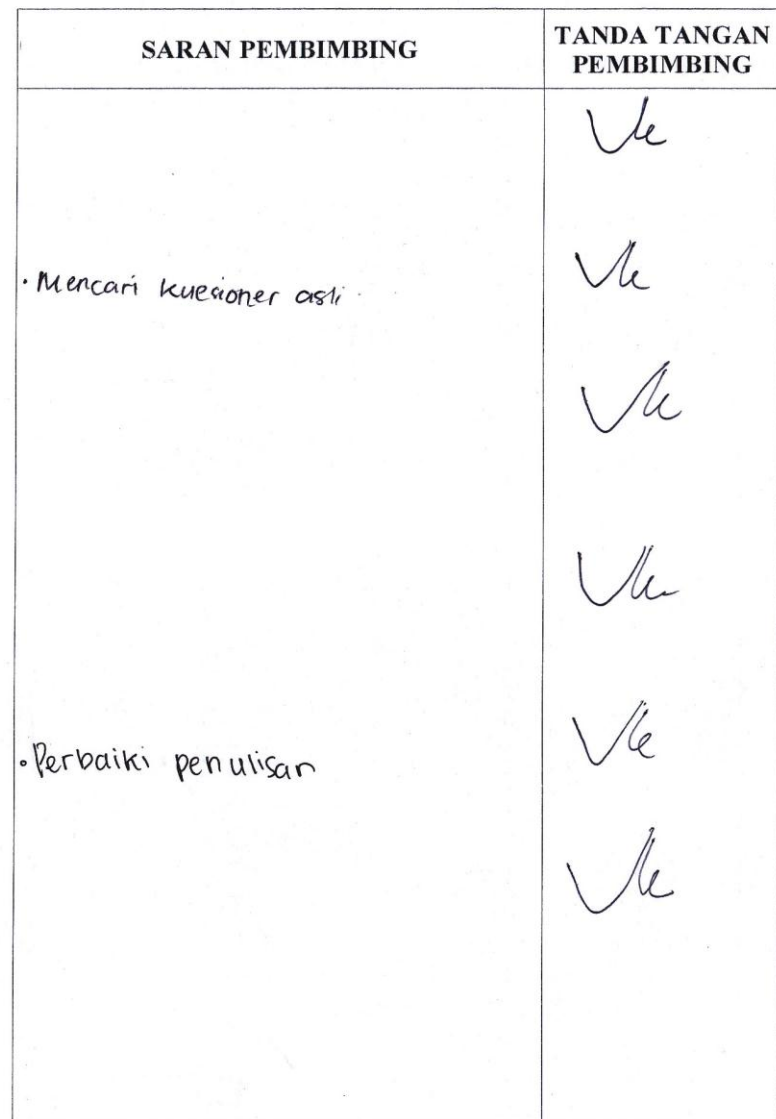 SARAN PEMBIMBING
TANDA TANGAN
PEMBIMBING
· Mencari kuesioner asli.
• Perbaiki penulisan